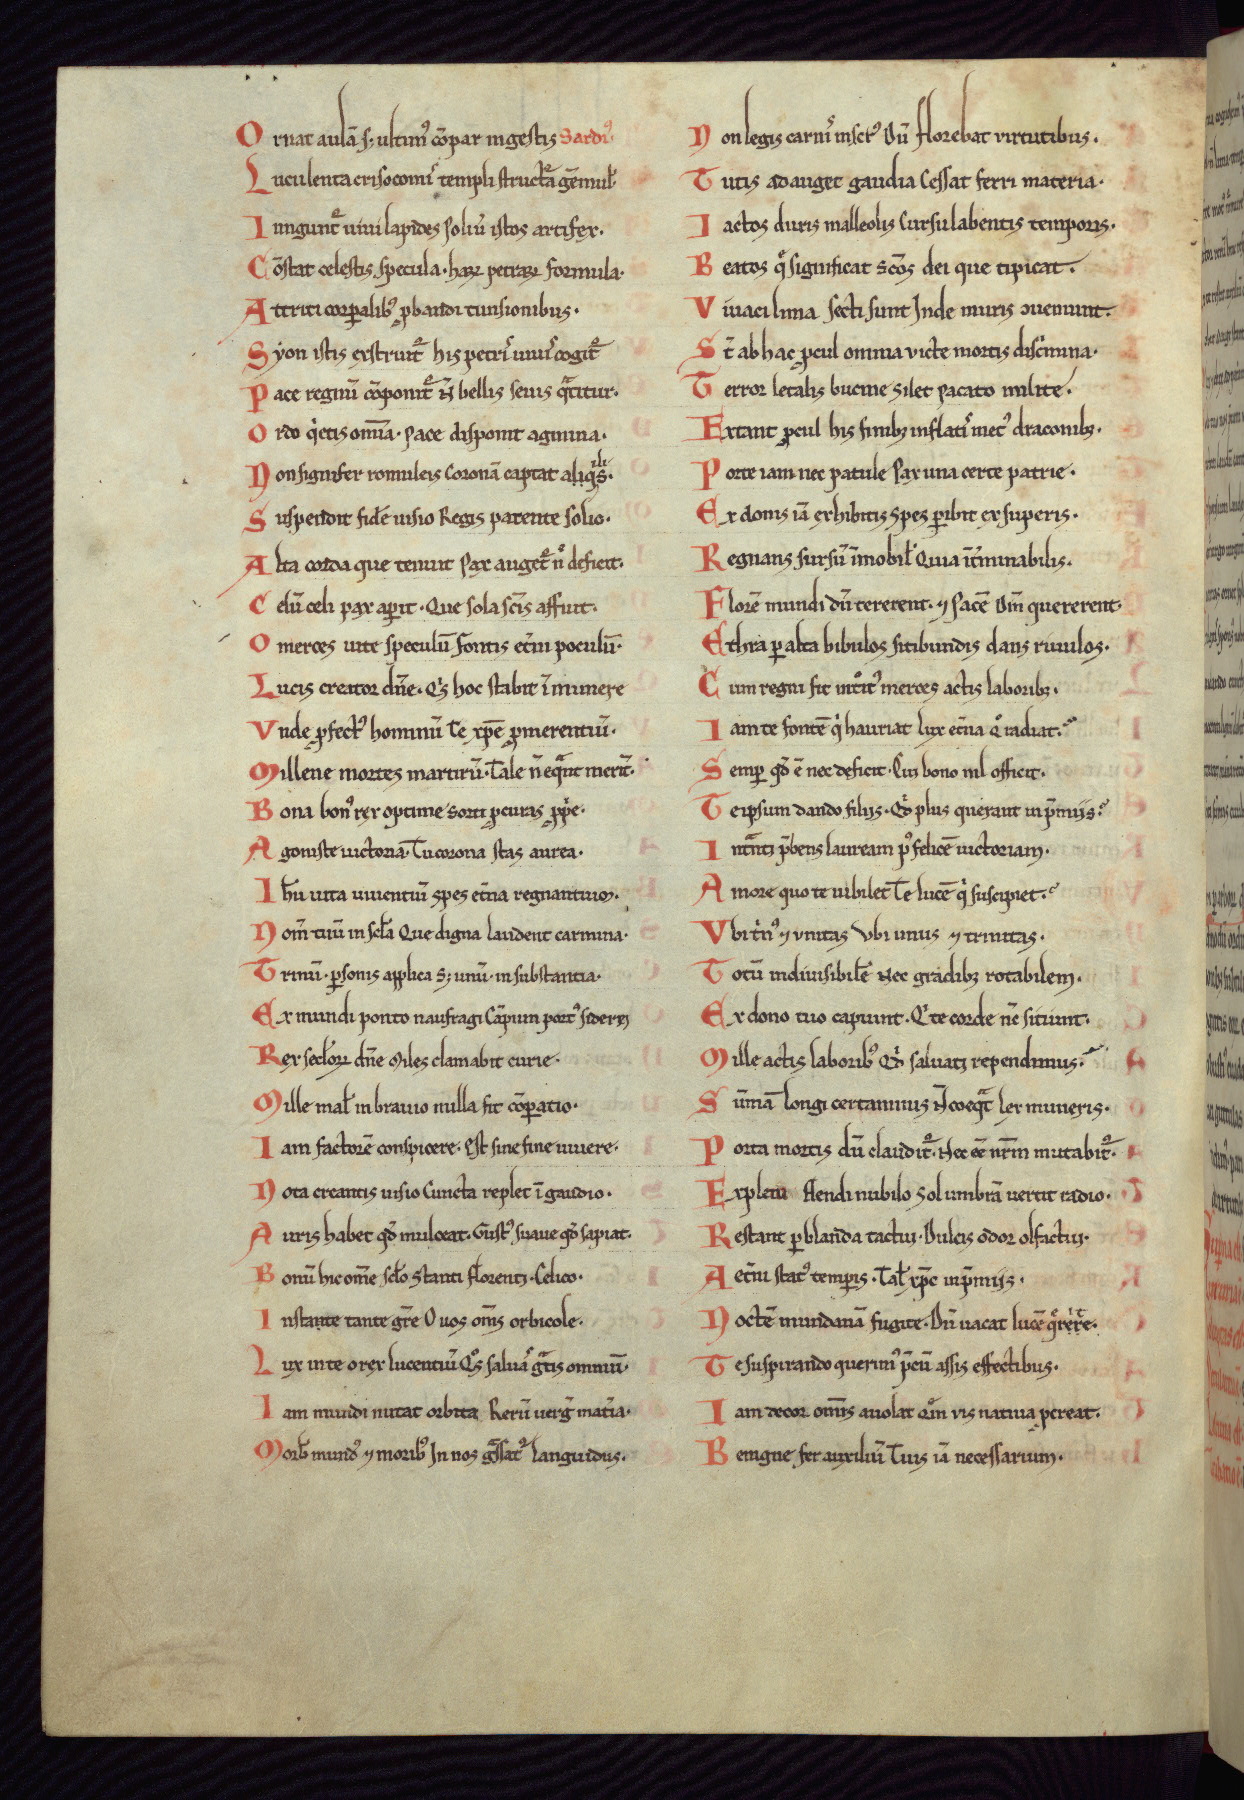 Ornat aulā s; ultim᷒ cōpar in gestis Sardi᷒
Luculenta crisocomi templi structᷓa gēmul᷒
Iungunt᷒ uiui lapides Soliū istos artifex.
Cōstat celestis specula. harꝝ petrarꝝ formula.
Attriti corꝑalib᷒ ꝓbandi tunsionibus.
Syon istis exstruit᷒ his petris uiuis cogit᷒
Pace regnū cōponit᷒ N̄ bellis seuis qᷓtitur.
Ordo qͥetis omīa. Pace disponit agmina.
Non signifer romuleis Coronā captat aliqͥs.
Suspendit fidē uisio Regis patente solio.
Alta corda que tenuit Pax auget᷒ n̄ deficit.
Celū celi pax aꝑit. Que sola scīs affuit.
O merces uite speculū Fontis et̄ni poculū.
Lucis creator dn̄e. Qͥs hoc stabit ī munere
Vnde ꝓfect᷒ hominū Te xp̄e ꝓmerentiū.
Millene mortes martirū. Tale n̄ eqᷓnt merit̄.
Bona bon᷒ rex optime Sorti ꝓcuras ꝓpͥe.
Agoniste uictoriā. Tu corona stas aurea.
Ih̄u uita uiuentiū Spes et̄na regnantiuɱ.
Nom̄ tuū in scl̄a Que digna laudent carmina.
Trinū. ꝑsonis applica S; unū. in substantia.
Ex mundi ponto naufragi Cāpium port᷒ siderei
Rex seclorꝝ dn̄e Miles clamabit curie.
Mille mal᷒ in brauio nulla fit cōꝑatio.
Iam factorē conspicere. Est sine fine uiuere.
Nota creantis uisio Cuncta replet ī gaudio.
Auris habet qd̄ mulceat. Gust᷒ suaue qd̄ sapiat.
Bonū hic om̄e scl̄o Stanti florenti. Celico.
Instante tante gr̄e O uos om̄s orbicole.
Lux in te o rex lucentiū Qͦs saluas gᷓtis omniū.
Iam mundi nutat orbita Rerū uerg᷒ mat̄ia.
Morb᷒ mund᷒ ⁊ morib᷒ In nos gᷓssat᷒ languidus.
Non legis carnis insct᷒ Dū florebat virtutibus.
Tutis adauget gaudia Cessat ferri materia.
Iactos duris malleolis Cursu labentis temporis.
Beatos qͦs significat Scōs dei que tipicat.
Viuaci lima secti sunt Inde muris ɔueniunt.
St̄ ab hac ꝓcul omnia victe mortis discͥmina.
Terror letalis bucine Silet pacato milite.
Extant ꝓcul his finibꝫ inflatis met᷒ draconibꝫ.
Porte iam nec patule Pax una certe patrie.
Ex donis iā exhibitis Spes ꝑibit ex superis.
Regnans sursū īmobil᷒ Quia īt̄minabilis.
Florē mundi dū tererent. ⁊ Pacē Dm̄ quererent.
Ethra ꝑ alta bibulos Sitibundis dans riuulos.
Cum regni fit intͦit᷒ merces actis laboribꝫ.
Iam te fontē qͥ hauriat lux et̄na qͦ radiat.
Semꝑ qd̄ ē nec deficit. Cui bono nil officit.
Te ipsum dando filiis. Qͥd plus querant in p̄miis.
Intᷓnti p̄bens lauream p᷒ felicē uictoriam.
Amore quo te uibilet Te lucē qͥ suscipiet.
Vbi tͥn᷒ ⁊ vnitas Vbi unus ⁊ trinitas.
Totū indiuisibilē Nec gradibꝫ rotabilem.
Ex dono tuo capiunt. Qͥ te corde nc̄ sitiunt.
Mille actis laborib᷒ Qͥd saluati rependimus.
Sūmā longi certaminis N̄ coeqᷓt lex muneris.
Porta mortis dū claudit᷒. Nec eē nr̄m mutabit᷒.
Expletū flendi nubilo Sol umbrā uertit radio.
Restant ꝑ blanda tactui. Dulcis odor olfactui.
Aet̄ni stat᷒ temꝑis. Tal᷒ xp̄c in p̄miis.
Noctē mundanā fugite. Dū uacat lucē qͦrͥe.
Te suspirando querim᷒ p̄cū assis effectibus.
Iam decor om̄is auolat Qᷓm vis natiua ꝓcreat.
Benigne fer auxiliū Tuis iā necessarium.